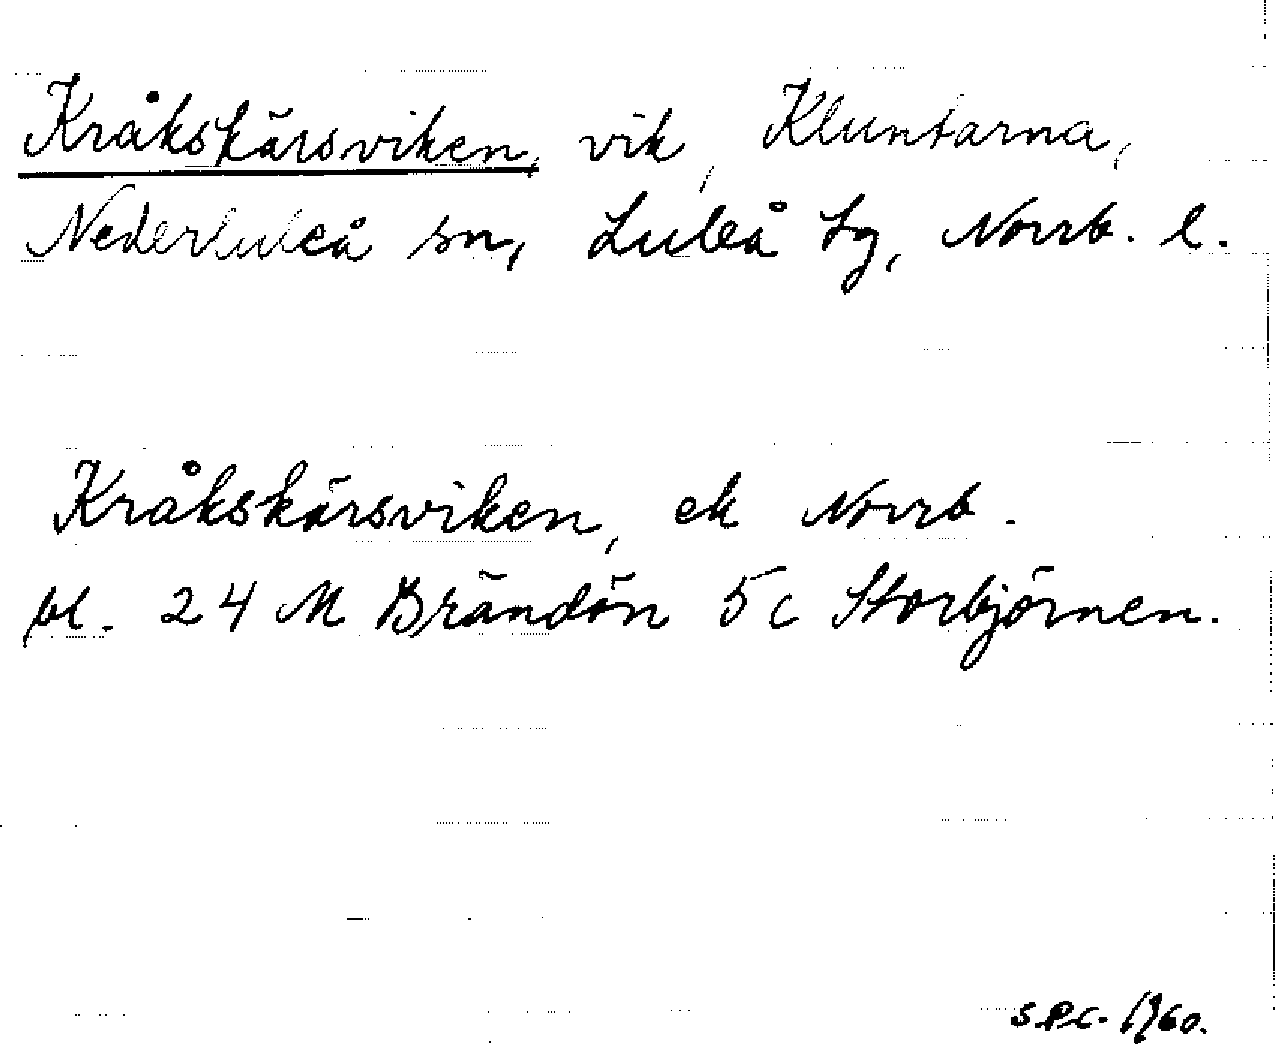 Kråkskärsviken, vik, Kluntarna,
Nederluleå sn, Luleå tg, Norrb. l.
Kråkskärsviken, ek Norrb.
bl. 24 M Brändön 5c Storbjörnen.
S.P.C. 1960.